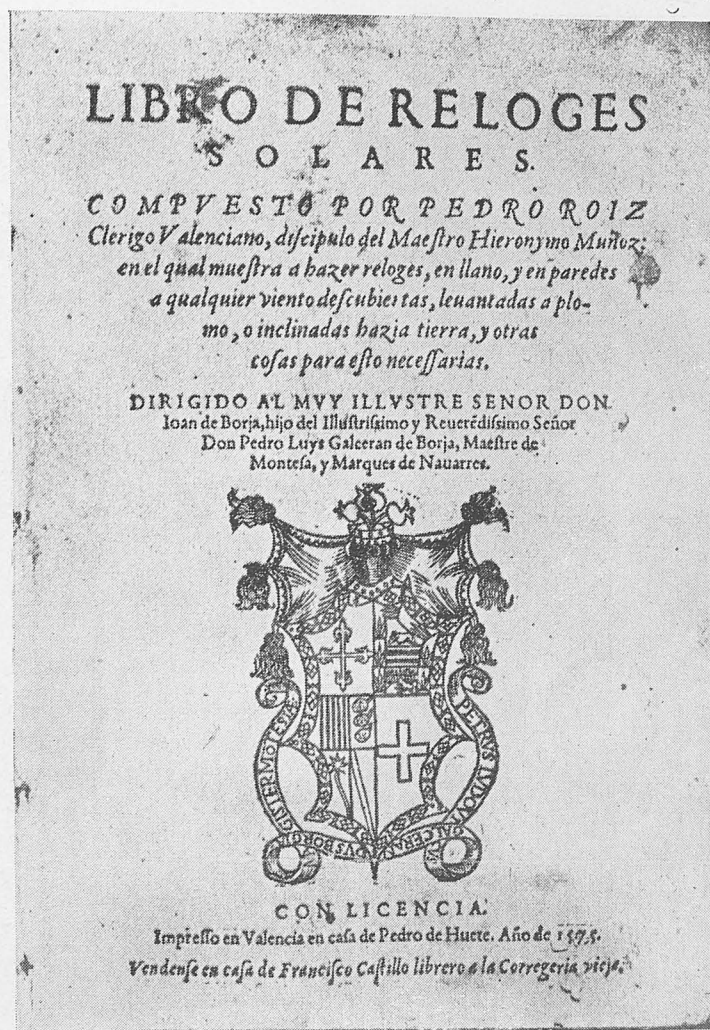 LIBRO DE RELOGES
SOLARES.
COMPVESTO POR PEDRO ROIZ
Clerigo Valenciano, diſcipulo del Maeſtro Hieronymo Muñoz:
en el qual mueſtra a hazer reloges, en llano, y en paredes
a qualquier viento deſcubiertas, leuantadas a plo-
mo, o inclinadas hazia tierra, y otras
coſas para eſto neceſſarias.
DIRIGIDO AL MVY ILLVSTRE SENOR DON
Ioan de Borja, hijo del Illuſtriſsimo y Reuerẽdiſsimo Señor
Don Pedro Luys Galceran de Borja, Maeſtre de
Monteſa, y Marques de Nauarres.
PETRVS LVDOVI
GALCERAN
CON LICENCIA.
Impreſſo en Valencia en caſa de Pedro de Huete. Año de 1575.
Vendenſe en caſa de Franciſco Caſtillo librero a la Corregeria vieja.